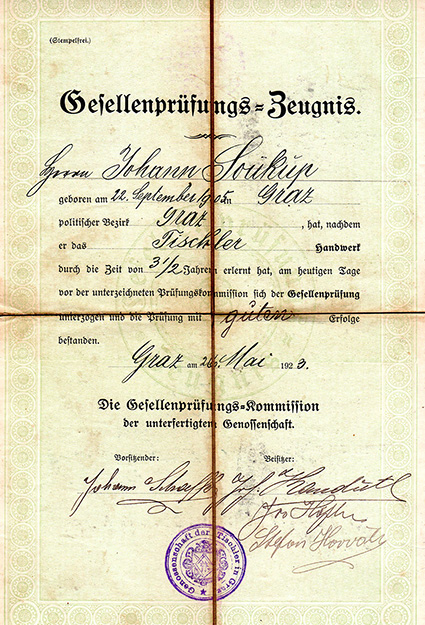 (Stempelfrei.)
Gesellenprüfungs-Zeugnis.
Herrn Johann Soukup
geboren am 22. September 1905 in Graz
politischer Bezirk Graz, hat, nachdem
er das Tischler Handwerk
durch die Zeit von 3 1/2 Jahren erlernt hat, am heutigen Tage
vor der unterzeichneten Prüfungskommission sich der Gesellenprüfung
unterzogen und die Prüfung mit guten Erfolge
bestanden.
Graz am 26. Mai 1923.
Die Gesellenprüfungs-Kommission
der unterfertigten Genossenschaft.
Vorsitzender: Beisitzer:
Johann
Stefan Horváth
Genossenschaft der Tischler in Graz